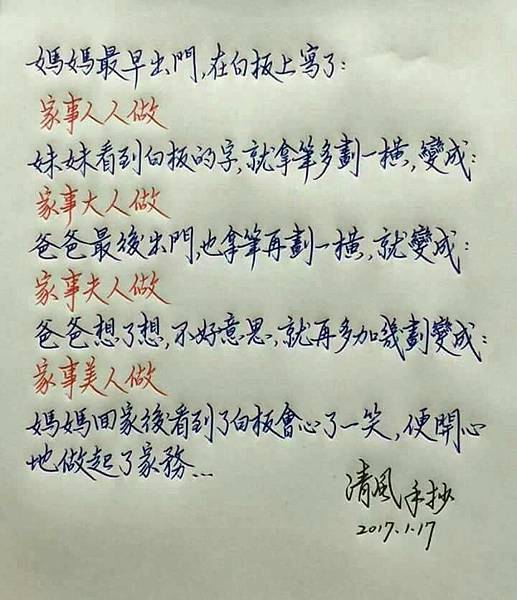 媽媽最早出門,在白板上寫了:
家事人人做
妹妹看到白板的字,就拿筆多劃一橫,變成:
家事大人做
爸爸最後出門,也拿筆再劃一橫,就變成:
家事夫人做
爸爸想了想,不好意思,就再多加幾劃變成:
家事美人做
媽媽回家後看到了白板會心了一笑,便開心
地做起了家務...
清風手抄
2017.1.17